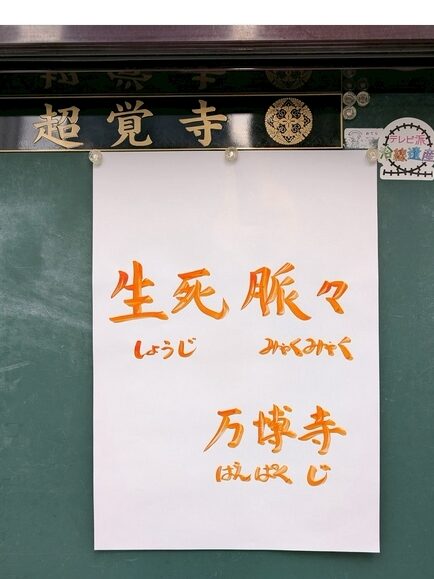 超覚寺
テレビ派
沿線遺産
生死脈々
しょうじ みゃくみゃく
万博寺
ばんぱくじ